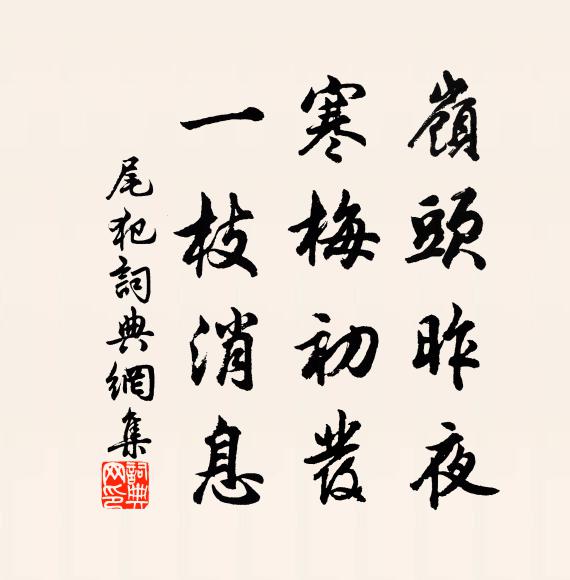 嶺頭昨夜
寒梅初發
一枝消息
尾犯詞典網集
詞典
网印